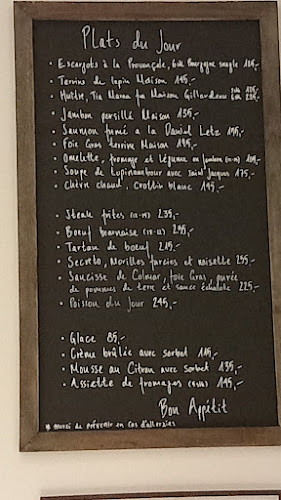 Plats du Jour
• Escargots à la Provençale, 6 stk Bourgogne snegle
• Terrine de lapin Maison 195,-
• Huître, Tia Maraa fra Maison Gillardeau
• Jambon persillé Maison 135,-
• Saumon fumé a la Daniel Letz 195,-
• Foie Gras terrine Maison 195,-
• Omelette, fromage et légume ou jambon
• Soupe de Topinambour avec Saint Jacques 175,-
• Chèvre chaud, Crottin blanc 145,-
• Steak frites 235,-
• Boeuf bearnaise 295,-
• Tartare de boeuf 215,-
• Secreto, Morilles farcies et noisette 255,-
• Saucisse de Colmar, foie Gras, purée
de pommes de terre et sauce échalote 225,-
• Poisson du jour 245,-
• Glace 85,-
• Crème brûlée avec sorbet 115,-
• Mousse au Citron avec sorbet 135,-
• Assiette de fromages 145,-
Bon Appétit
* merci de prévenir en cas d'allergies